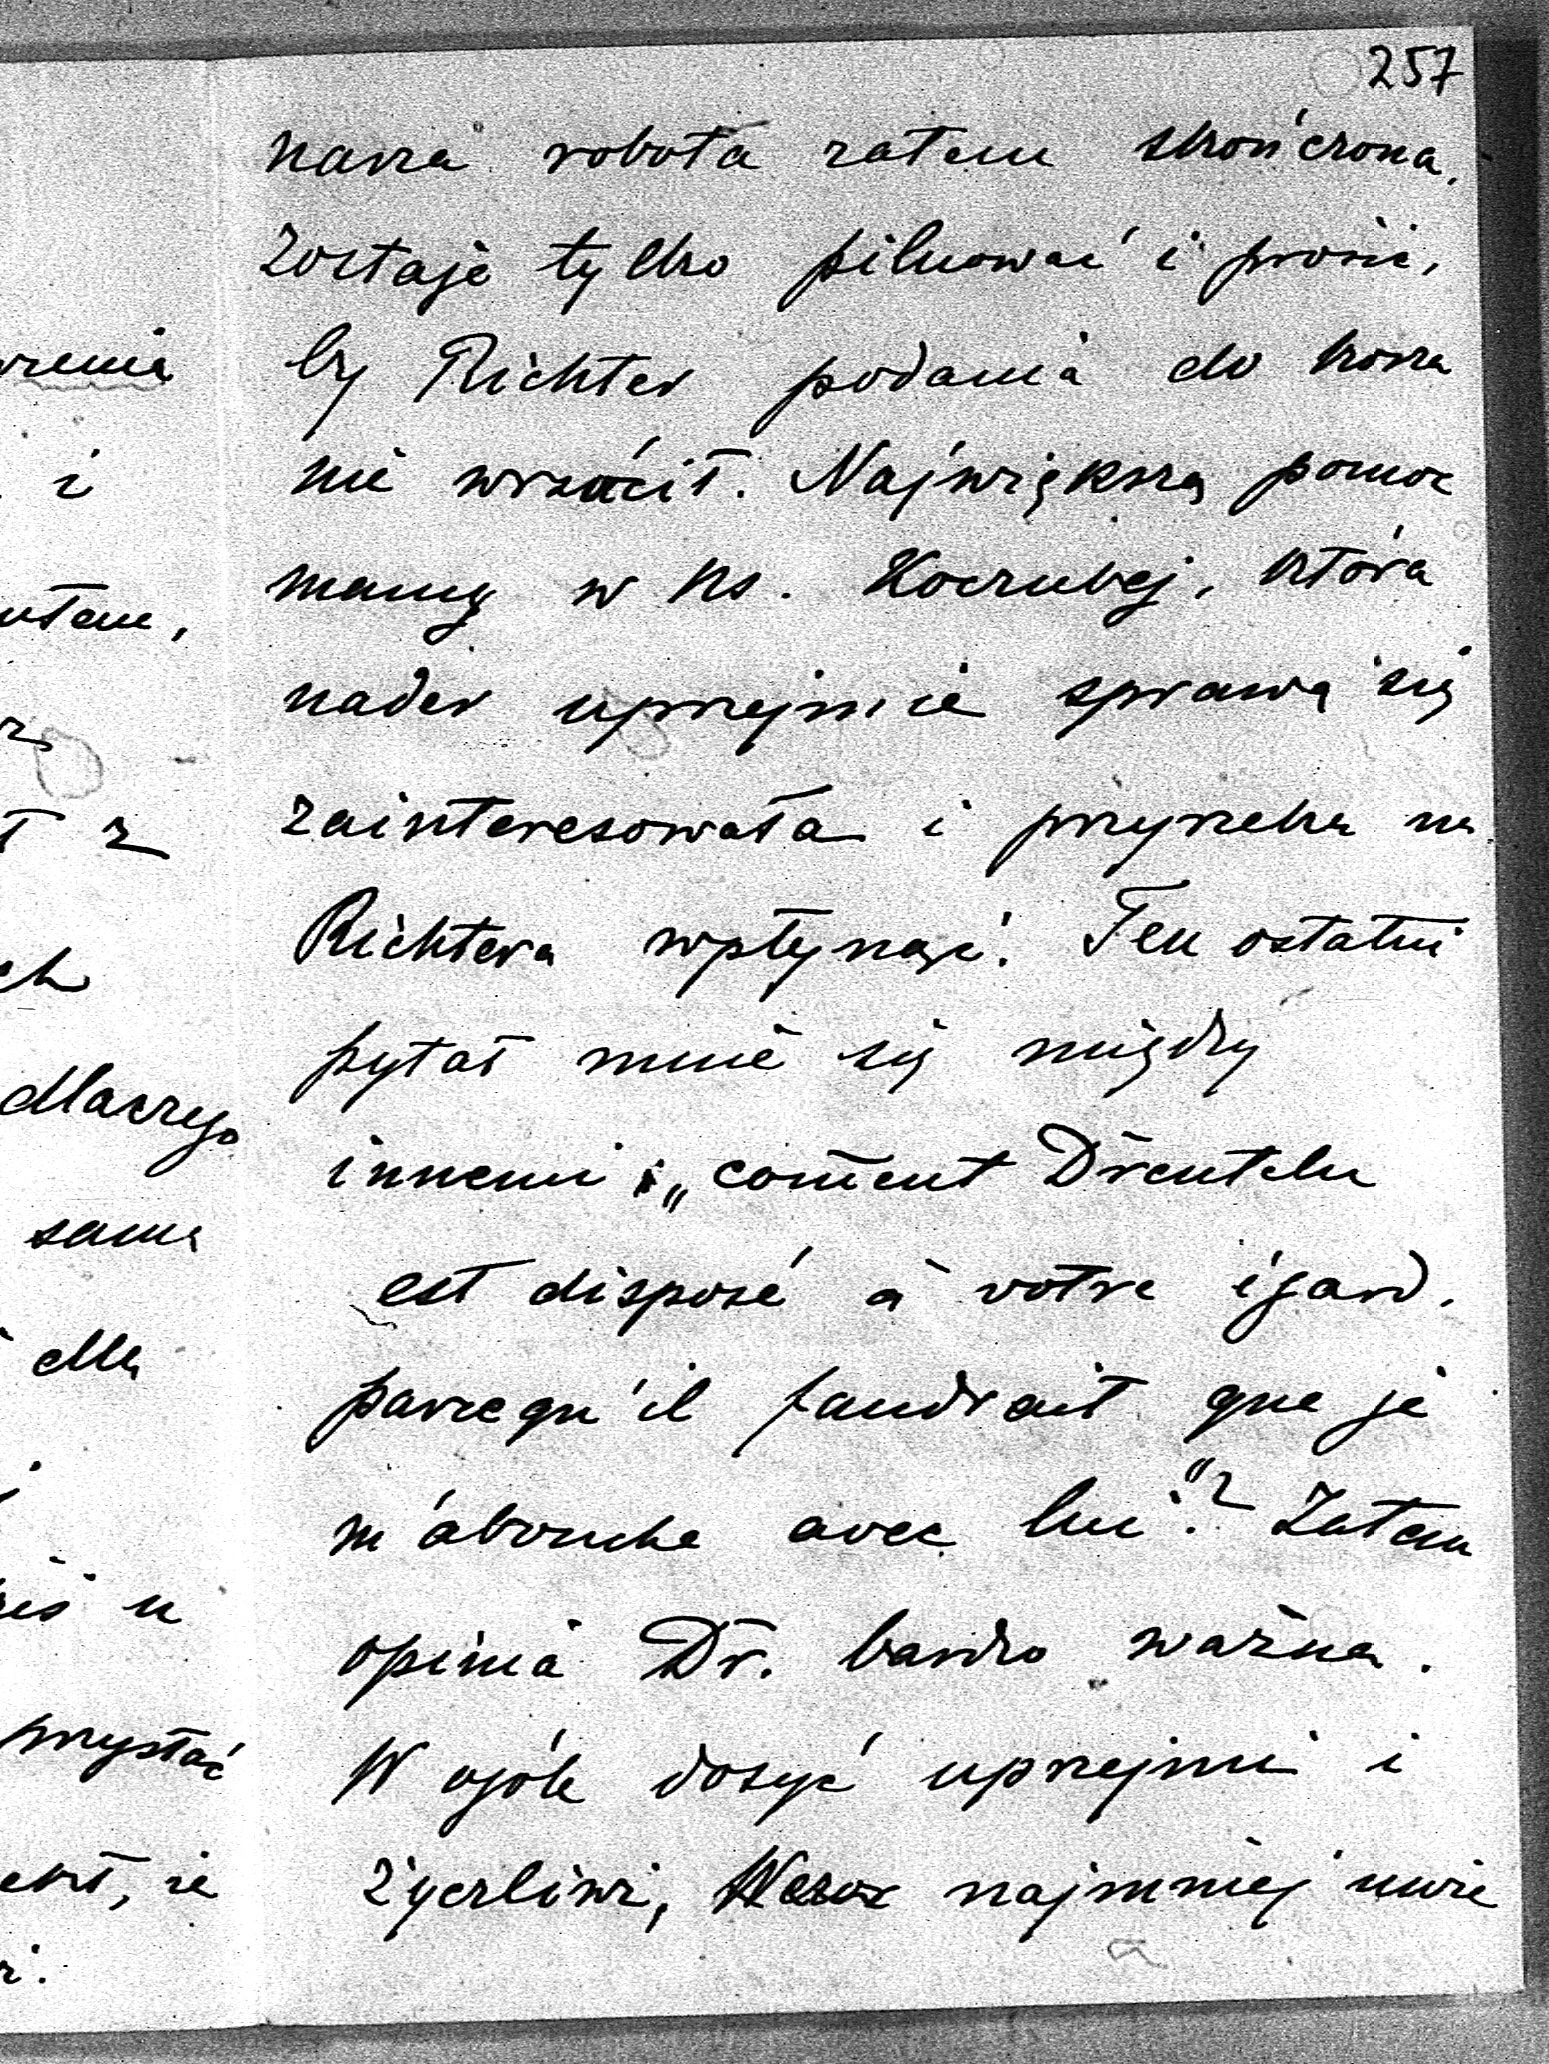 257
nasza robota zatem skończona.
Zostaje tylko pilnować i prosić,
by Richter podania do kosza
nie wrzócił. Największą pomoc
mamy w ks. Koczubej, która
nader uprzejmie sprawą się
zainteresowała i przyrzekła na
Richtera wpłynąć. Ten ostatni
pytał mnie się między
innemi: „com̄ent Drenteln
est disposé à votre égard,
parcequ'il faudrait que je
m'abouche avec lui"? Zatem
opinia Dr. bardzo ważna.
W ogóle dosyć uprzejmi i
życzliwi, najmniej umie
wrzenia
i
z
ch
dlaczego
sama
dla
u
przysłać
że